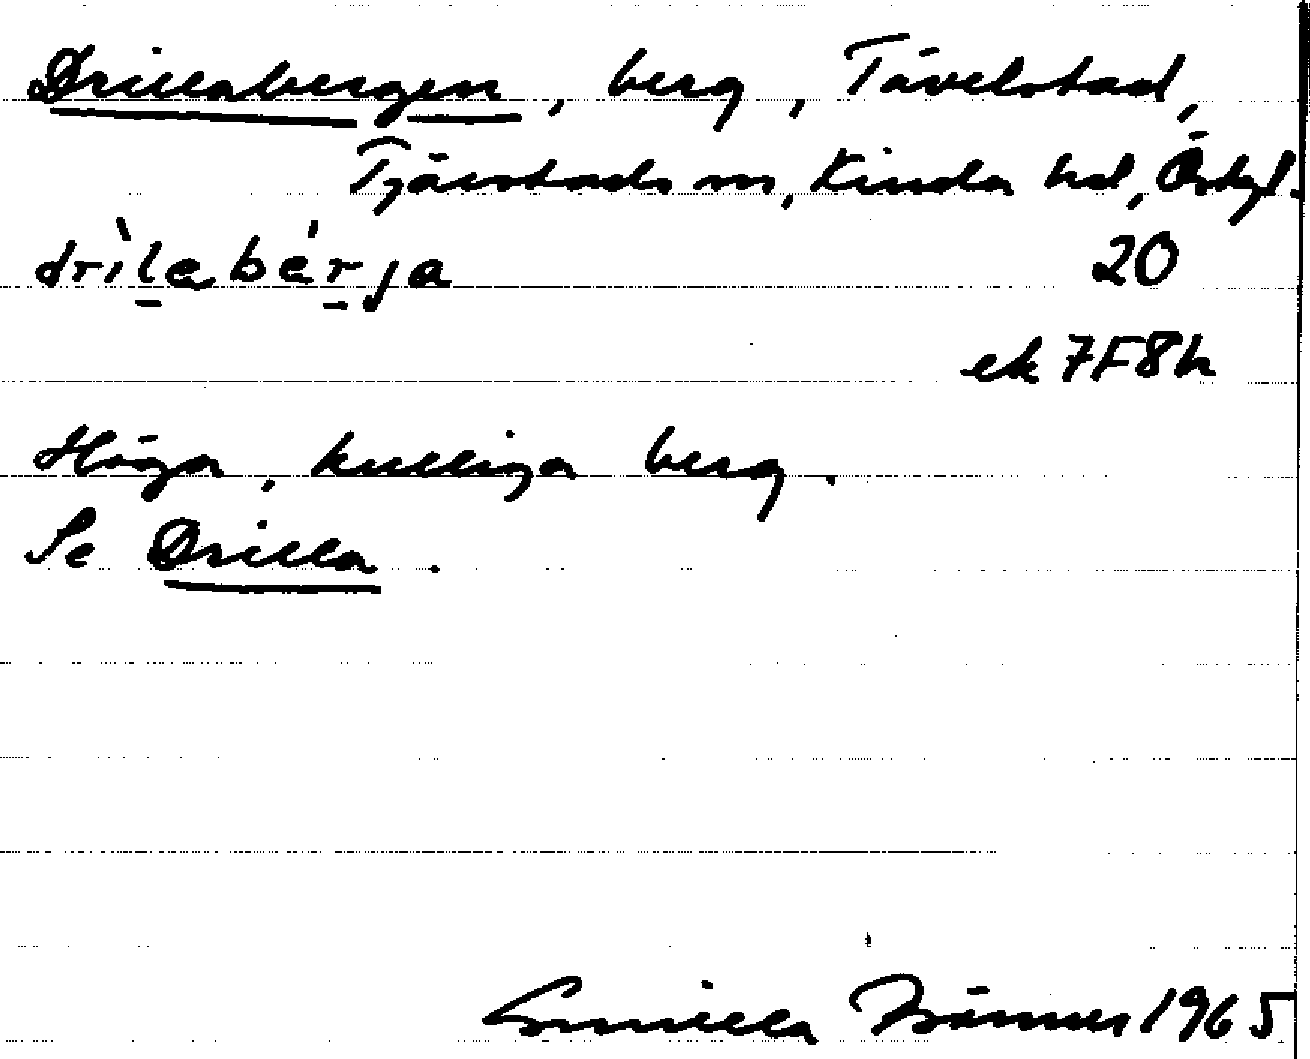 Drillabergen, berg, Tävelstad,
Tjärstads sn, Kinda hd, Östgl.
drìlabérja 20
ek 7F8h
Höga, kulliga berg.
Se Drilla.
Gunilla 1965